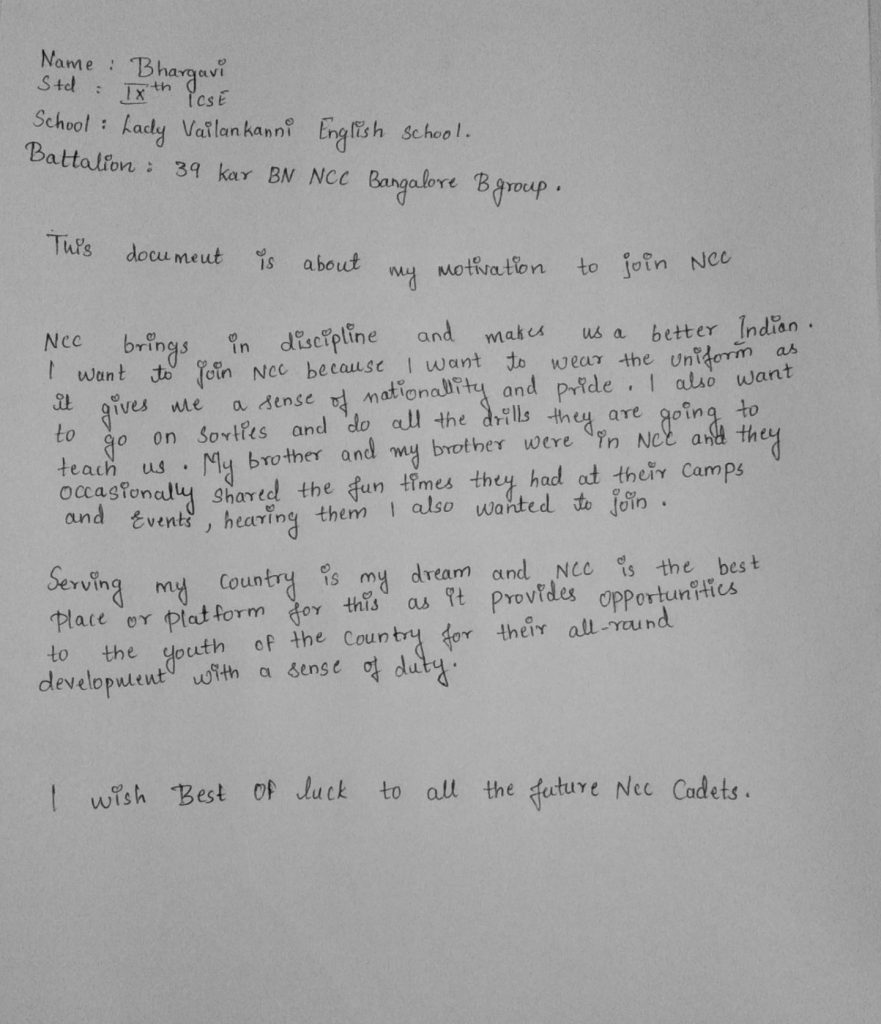 Name : Bhargavi
Std : IXth ICSE
School : Lady Vailankanni English School.
Battalion : 39 kar BN NCC Bangalore B group.
This document is about my motivation to join NCC
NCC brings in discipline and makes us a better Indian.
I want to join NCC because I want to wear the uniform as
it gives me a sense of nationallity and pride. I also want
to go on Sorties and do all the drills they are going to
teach us. My brother and my brother were in NCC and they
occasionally shared the fun times they had at their camps
and Events, hearing them I also wanted to join.
Serving my Country is my dream and NCC is the best
Place or platform for this as it provides opportunities
to the youth of the Country for their all-round
development with a sense of duty.
I wish Best Of luck to all the future Ncc Cadets.